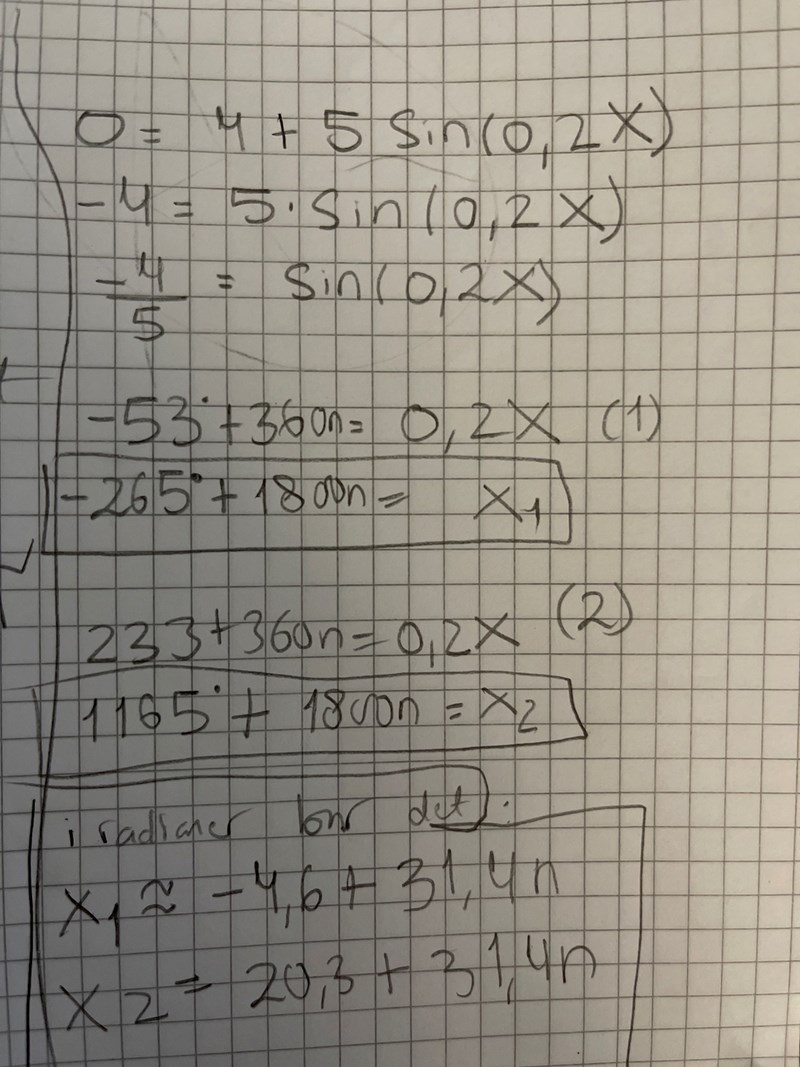 0 = 4 + 5 sin(0,2x)
-4 = 5·sin(0,2x)
-4/5 = sin(0,2x)
-53° + 360n = 0,2x (1)
-265° + 1800n = x₁
233 + 360n = 0,2x (2)
1165° + 1800n = x₂
i radianer blir det:
x₁ ≈ -4,6 + 31,4n
x2 = 20,3 + 31,4n